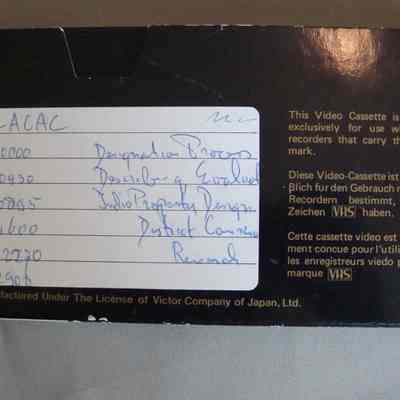 -ACAC
0000 Designation Process
0930 Describing Evaluat
Indiv Property Design
1600 District Comm
2220 Renewal
290
This Video Cassette is
exclusively for use w
recorders that carry th
mark.
Diese Video-Cassette ist
βlich fur den Gebrauch r
Recordern bestimmt,
Zeichen VHS haben.
Cette cassette video est
ment concue pour l'utili
les enregistreurs viedo p
marque VHS
factured Under The License of Victor Company of Japan, Ltd.